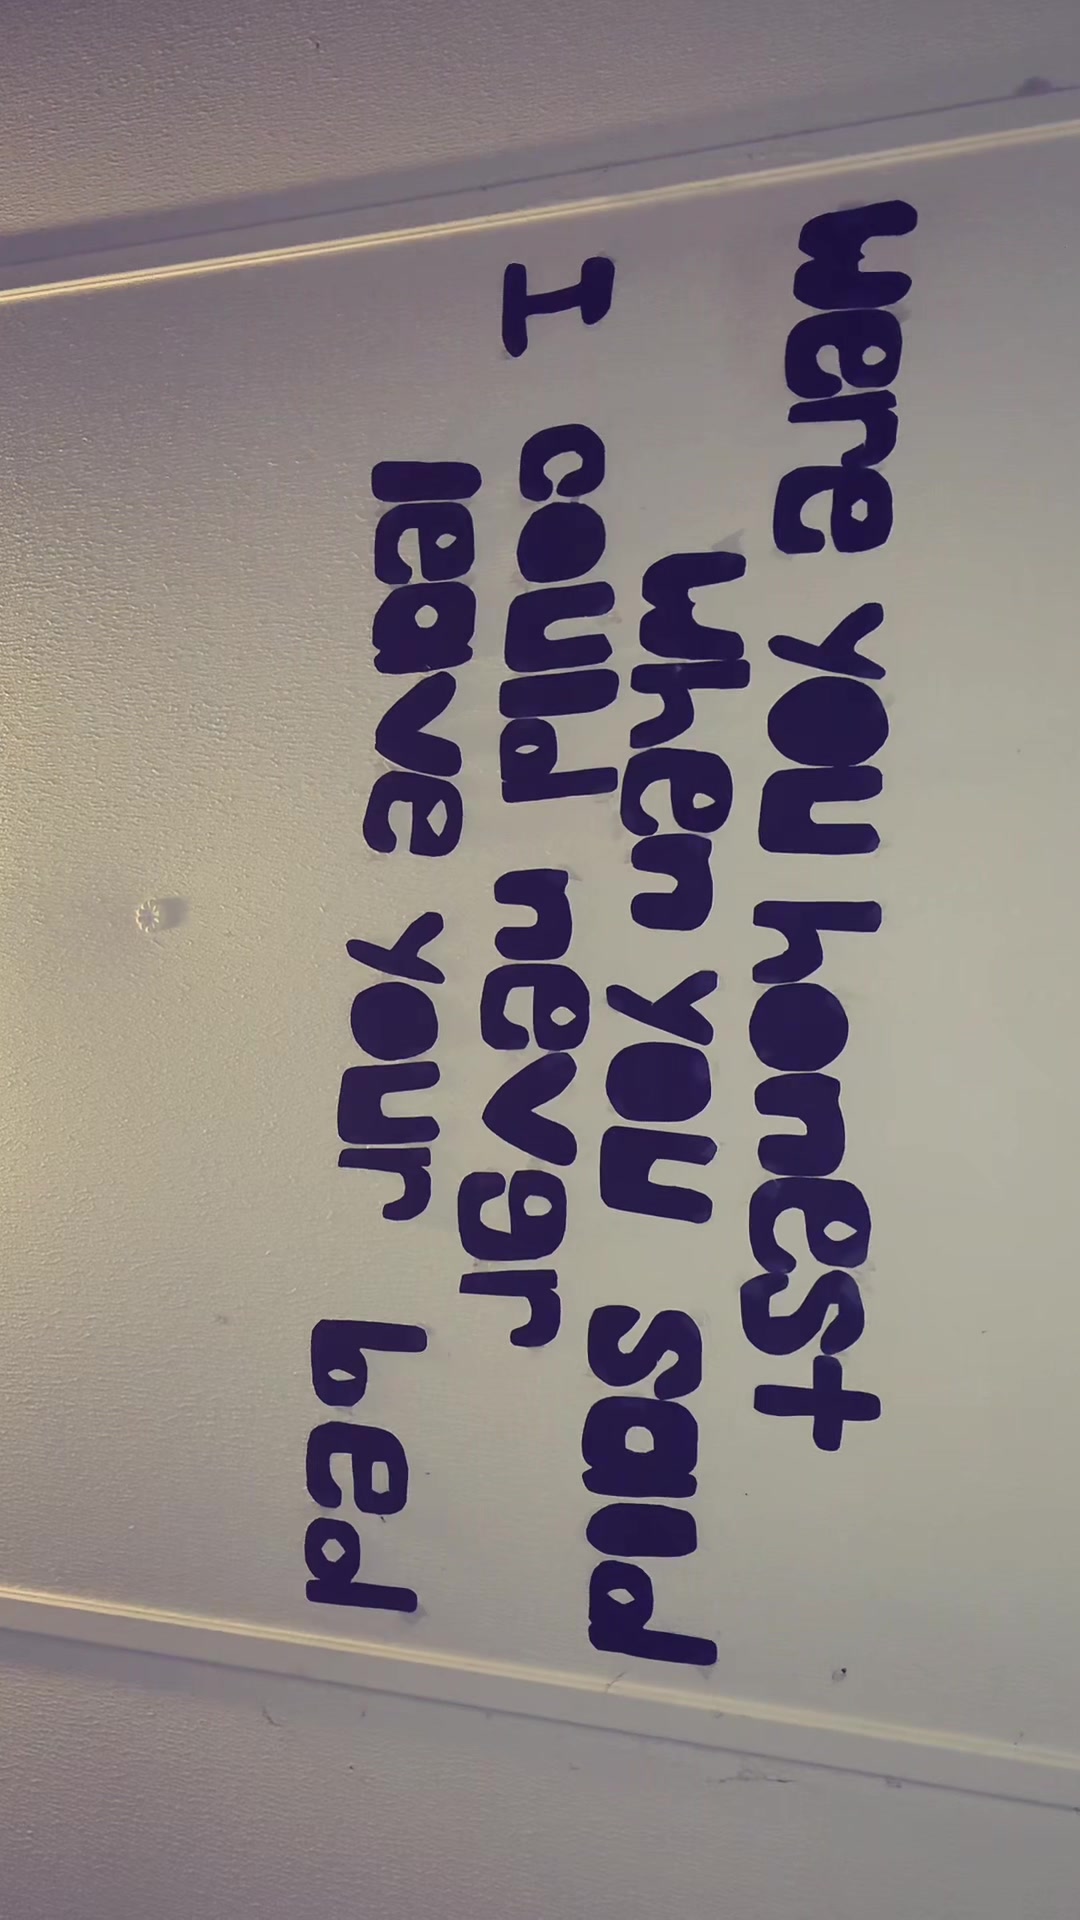 Were you honest
when you said
I could never
leave your bed